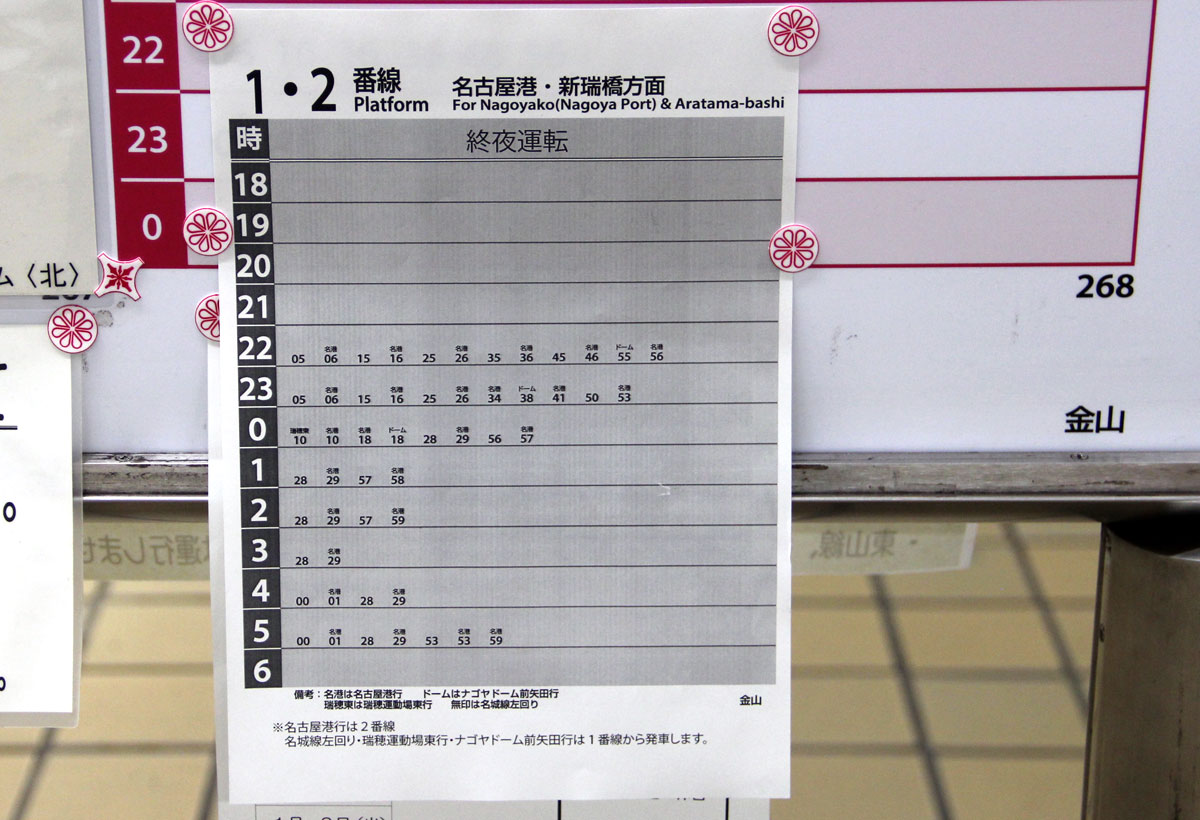 22
23
0
268
金山
1・2 番線 名古屋港・新瑞橋方面
Platform For Nagoyako(Nagoya Port) & Aratama-bashi
時 終夜運転
18
19
20
21
名港 名港 名港 名港 名港 ドーム 名港
22 05 06 15 16 25 26 35 36 45 46 55 56
名港 名港 名港 名港 ドーム 名港 名港
23 05 06 15 16 25 26 34 38 41 50 53
瑞穂東 名港 名港 ドーム 名港 名港
0 10 10 18 18 28 29 56 57
名港 名港
1 28 29 57 58
名港 名港
2 28 29 57 59
名港
3 28 29
名港 名港
4 00 01 28 29
名港 名港 名港 名港
5 00 01 28 29 53 53 59
6
備考：名港は名古屋港行 ドームはナゴヤドーム前矢田行
瑞穂東は瑞穂運動場東行 無印は名城線左回り
金山
※名古屋港行は２番線
名城線左回り・瑞穂運動場東行・ナゴヤドーム前矢田行は１番線から発車します。
ム〈北〉
・東山線、
運行しませ